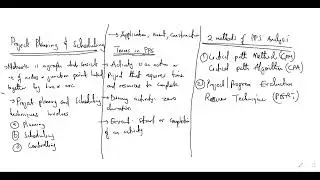 Project Planning & Scheduling
→ Network is a graph that consist
of nodes or junction points linked
together by line or arc
→ Project planning and Scheduling
techniques involves
(a) Planning
(b) Scheduling
(c) Controlling
→ Application, event, Construction
Terms in PPS
→ Activity is an action or
Project that requires time
and resources to complete
→ Dummy activity: zero
duration
→ Event: start or completion
of an activity
2 methods of PPS Analysis
(1) Critical path Method (CPM)
Critical path Algorithm (CPA)
(2) Project/Program Evaluation
Review Technique (PERT)